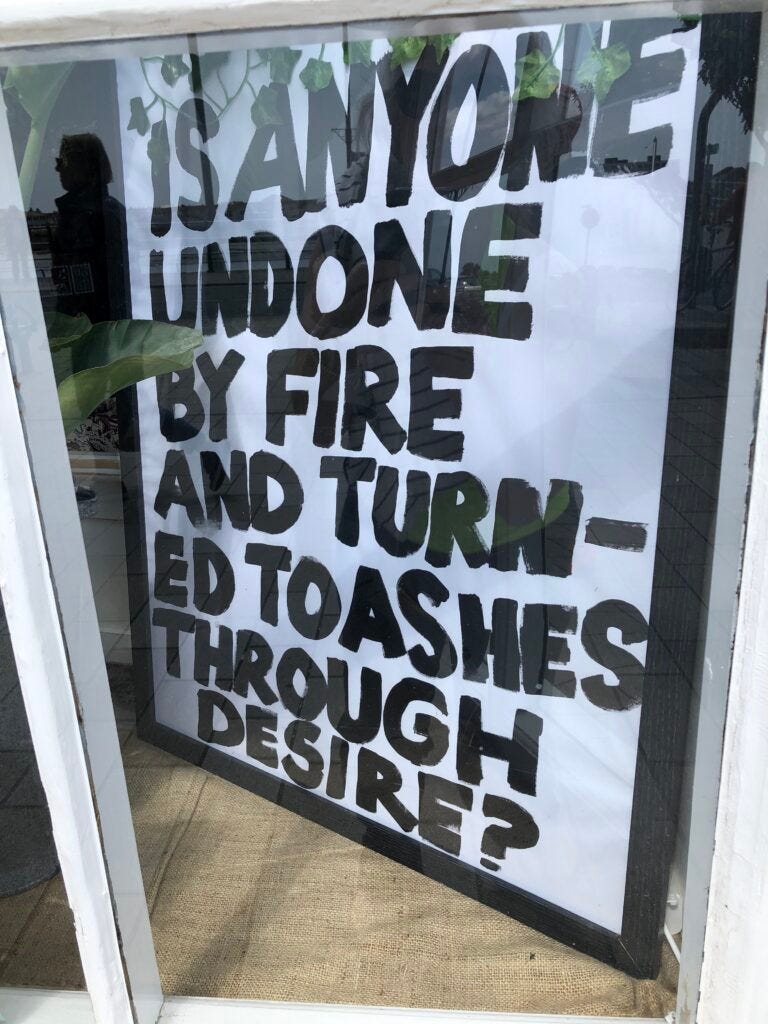 IS ANYONE
UNDONE
BY FIRE
AND TURN-
ED TO ASHES
THROUGH
DESIRE?